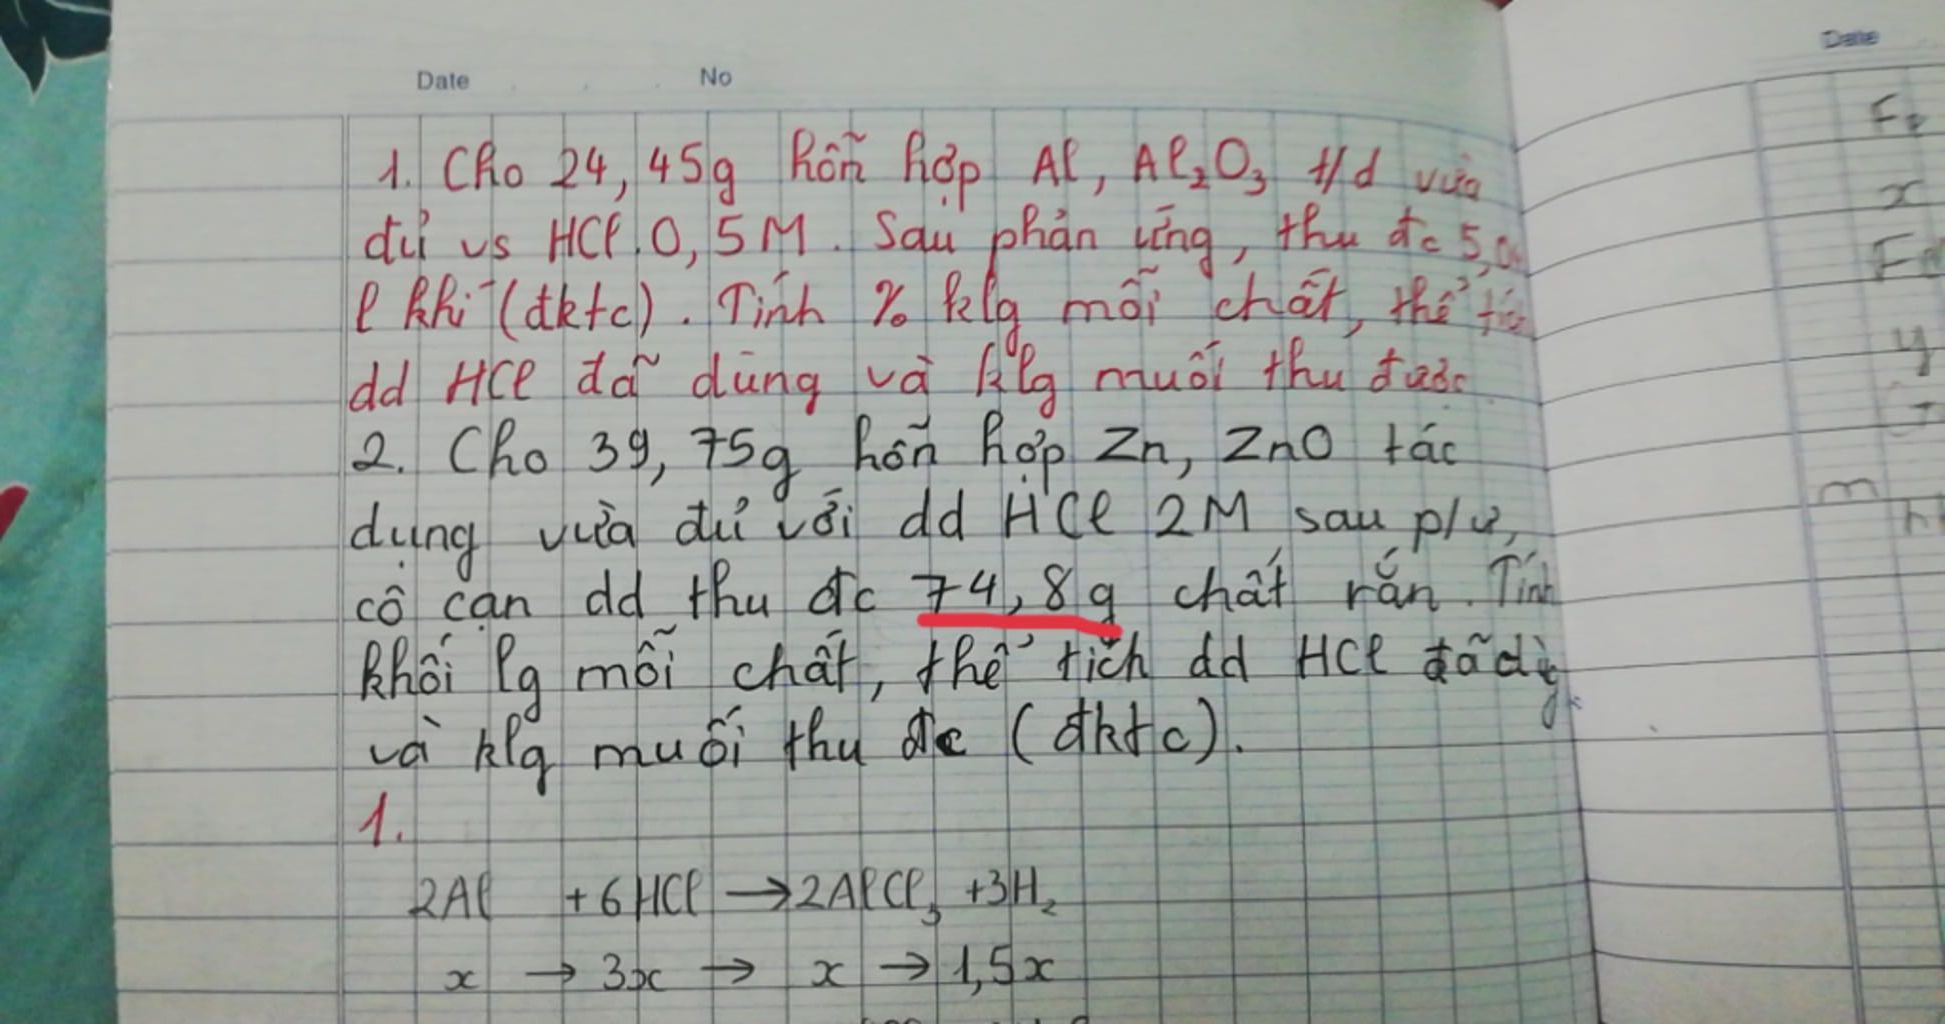 Date No
Date
1. Cho 24,45g hỗn hợp Al, Al₂O₃ t/d vừa
đủ vs HCl 0,5M. Sau phản ứng, thu đc 5,0
l khí (đktc). Tính % klg mỗi chất, thể tích
dd HCl đã dùng và klg muối thu được
2. Cho 39,75g hỗn hợp Zn, ZnO tác
dụng vừa đủ với dd HCl 2M sau p/ư,
cô cạn dd thu đc 74,8g chất rắn. Tính
khối lg mỗi chất, thể tích dd HCl đã dùg
và klg muối thu đc (đktc).
1.
2Al + 6HCl → 2AlCl₃ + 3H₂
x → 3x → x → 1,5x
x
y
m